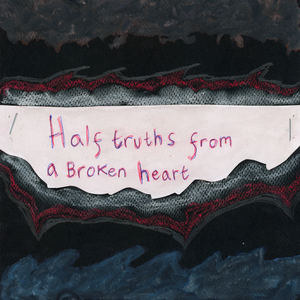 Half truths from
a BroKen heart